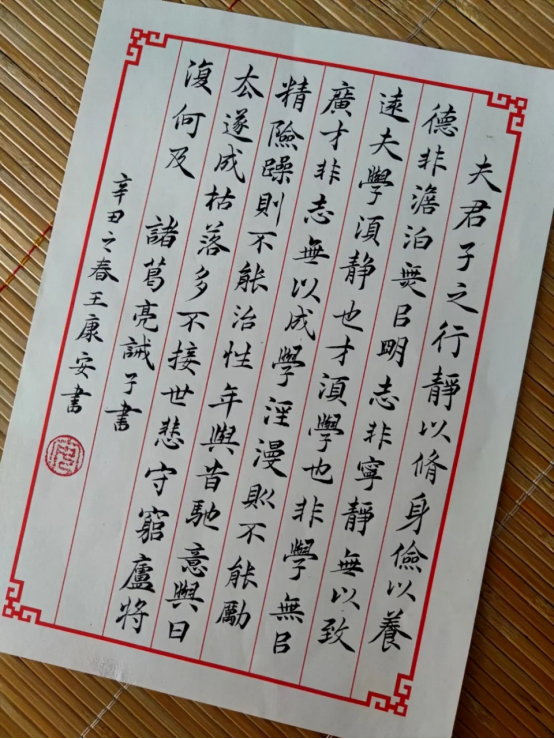 夫君子之行靜以脩身儉以養
德非澹泊無以明志非寧靜無以致
遠夫學須靜也才須學也非學無以
廣才非志無以成學淫漫則不能勵
精險躁則不能治性年與旹馳意與日
去遂成枯落多不接世悲守窮廬將
復何及 諸葛亮誡子書
辛丑之春王康安書